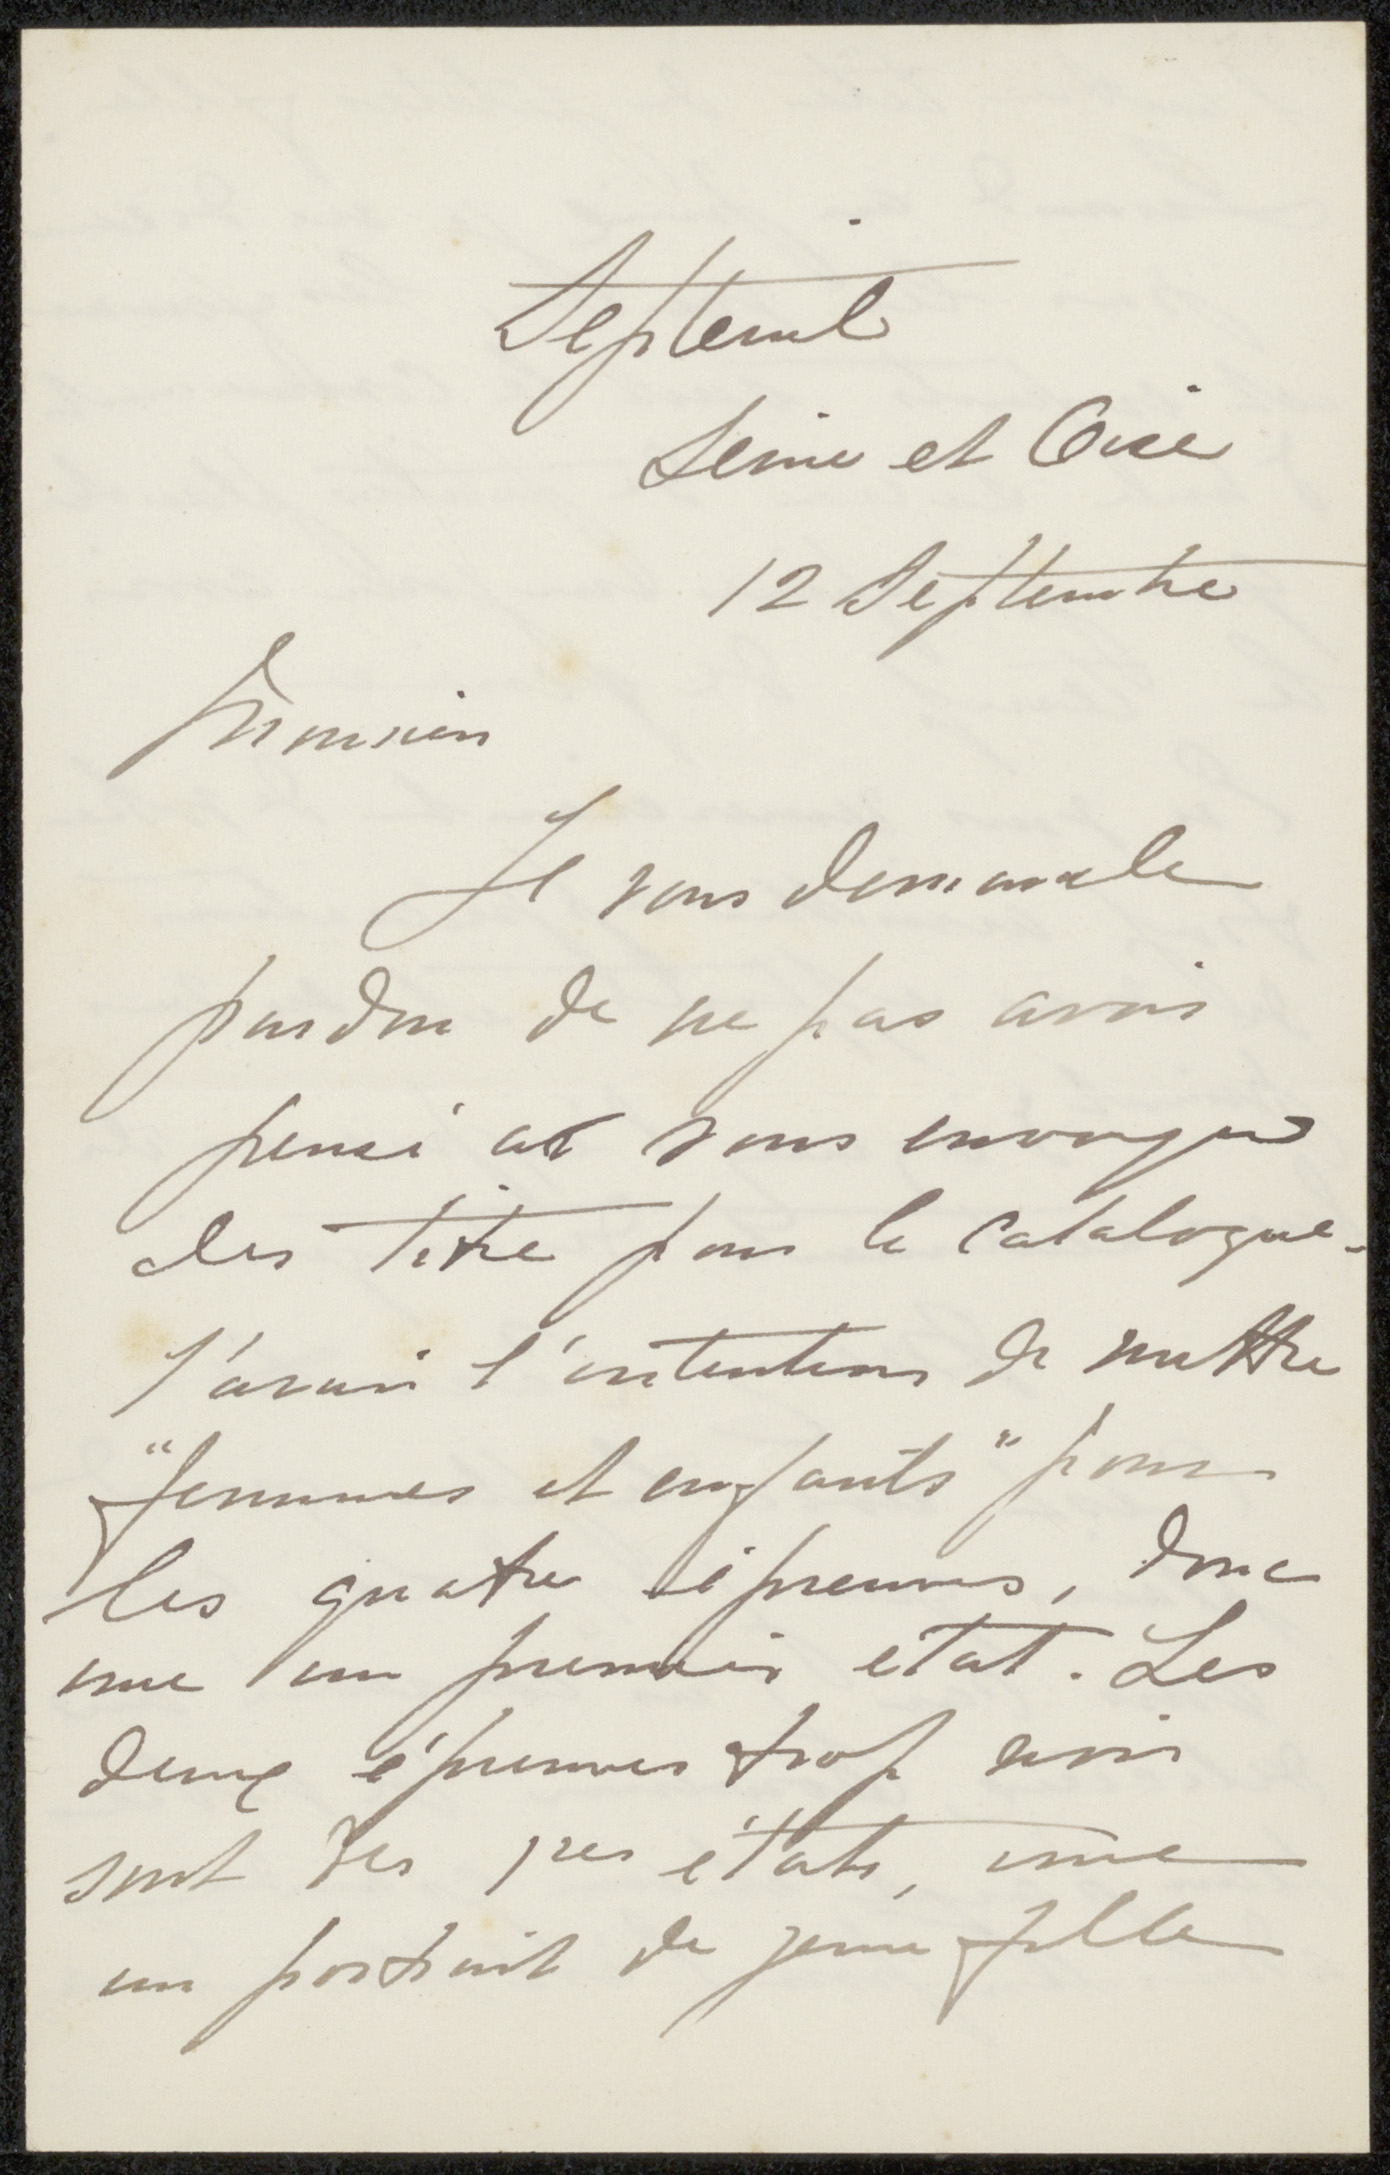 Septeuil
Seine et Oise
12 Septembre
Monsieur
Je vous demande
pardon de ne pas avoir
pensé à vous envoyer
des titre pour le catalogue.
J'avais l'intention de mettre
"femmes et enfants" pour
les quatre épreuves, donc
une un premier état. Les
deux épreuves trop noir
sont des 1res états, une
un portrait de jeune fille